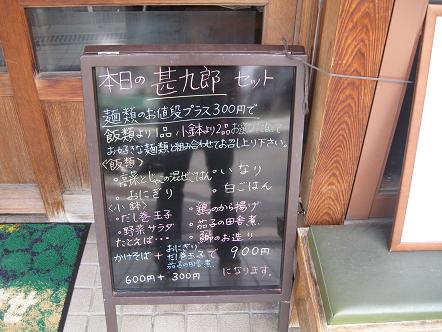 本日の 甚九郎 セット
麺類のお値段プラス300円で
飯類より1品 小鉢より2品お選び
お好きな麺類と組み合わせてお召し上り下さい。
〈飯類〉
・高菜とじゃこの混ぜごはん ・いなり
・おにぎり ・白ごはん
〈小鉢〉
・だし巻玉子 ・鶏のから揚げ
・野菜サラダ ・茄子の田舎煮
たとえば… ・鰤のお造り
かけそば + おにぎり だし巻玉子 茄子の田舎煮 で 900円
600円 + 300円 になります。
せ